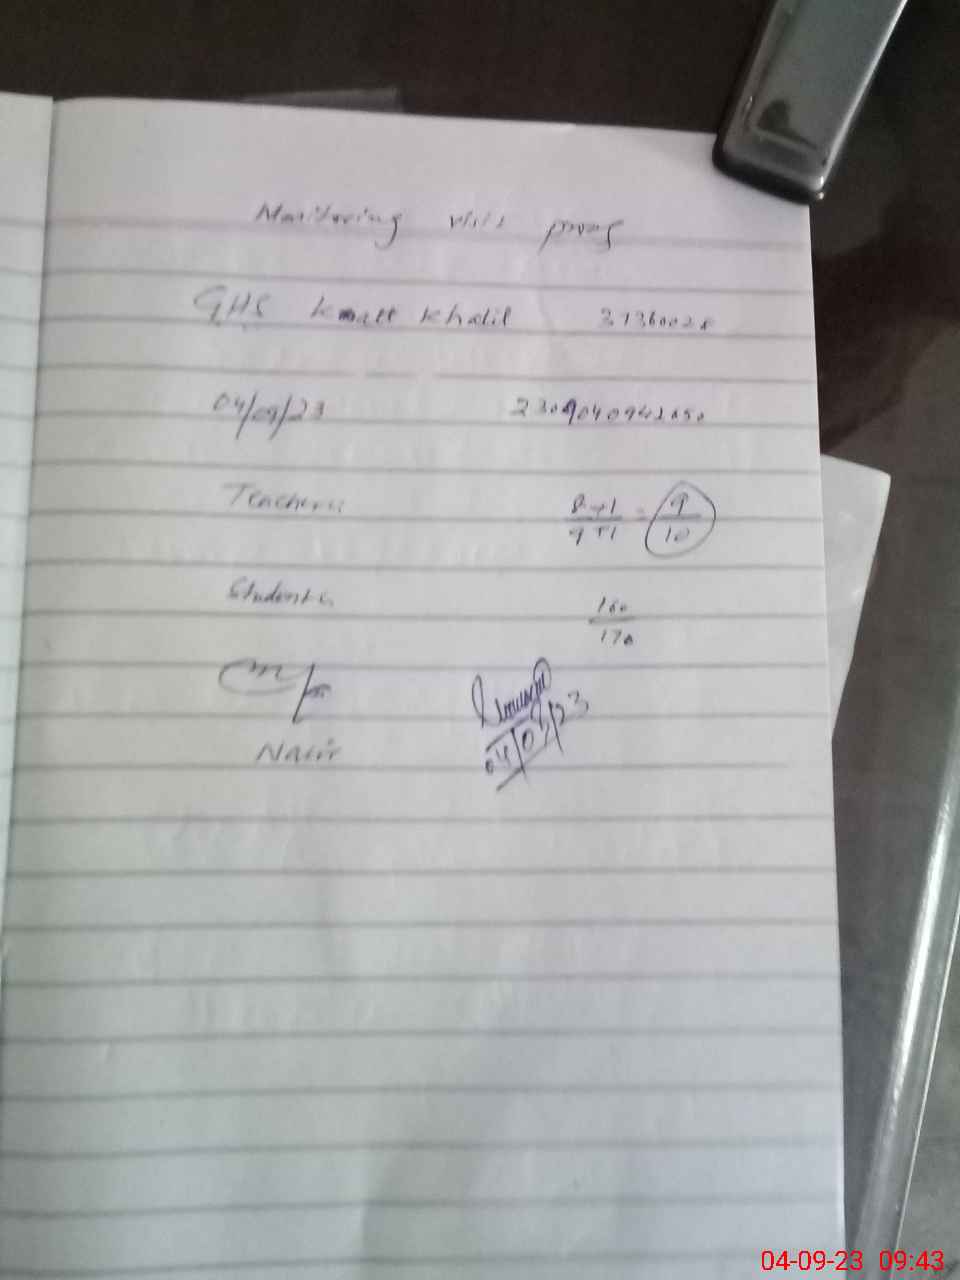 Monitoring visit proof
GHS Kmatt Khalil 37360028
04/09/23 2309040942050
Teachers 8+1/9+1 = 9/10
Students 160/170
Nasir
04/09/23
04-09-23 09:43